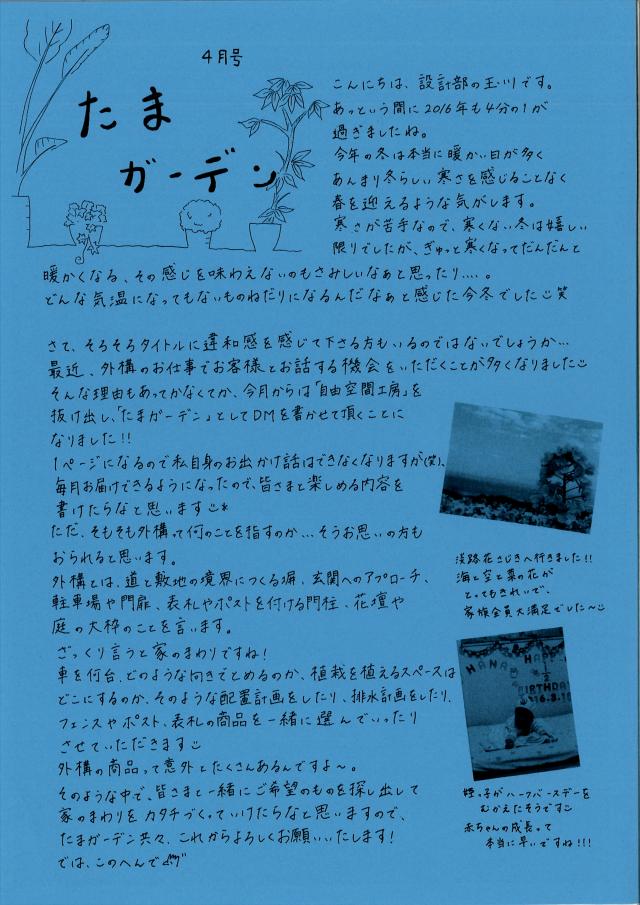 4月号
たま
ガーデン
こんにちは、設計部の玉川です。
あっという間に2016年も4分の1が
過ぎましたね。
今年の冬は本当に暖かい日が多く
あんまり冬らしい寒さを感じることなく
春を迎えるような気がします。
寒さが苦手なので、寒くない冬は嬉しい
限りでしたが、ぎゅっと寒くなってだんだんと
暖かくなる、その感じを味わえないのもさみしいなぁと思ったり....。
どんな気温になってもないものねだりになるんだなぁと感じた今冬でした笑
さて、そろそろタイトルに違和感を感じて下さる方もいるのではないでしょうか...
最近、外構のお仕事でお客様とお話する機会をいただくことが多くなりました
そんな理由もあってかなくてか、今月からは「自由空間工房」を
抜け出し、「たまガーデン」としてDMを書かせて頂くことに
なりました!!
1ページになるので私自身のお出かけ話はできなくなりますが(笑)、
毎月お届けできるようになったので、皆さまと楽しめる内容を
書けたらなと思います
ただ、そもそも外構って何のことを指すのか...そうお思いの方も
おられると思います。
外構とは、道と敷地の境界につくる塀、玄関へのアプローチ、
駐車場や門扉、表札やポストを付ける門柱、花壇や
庭の大枠のことを言います。
ざっくり言うと家のまわりですね!
車を何台、どのような向きでとめるのか、植栽を植えるスペースは
どこにするのか、そのような配置計画をしたり、排水計画をしたり、
フェンスやポスト、表札の商品を一緒に選んでいったり
させていただきます
外構の商品って意外とたくさんあるんですよ〜。
そのような中で、皆さまと一緒にご希望のものを探し出して
家のまわりをカタチづくっていけたらなと思いますので、
たまガーデン共々、これからよろしくお願いいたします!
では、このへんで
淡路花さじきへ行きました!!
海と空と菜の花が
とってもきれいで、
家族全員大満足でした〜
HANA
BIRTHDAY
姪っ子がハーフバースデーを
むかえたそうです
赤ちゃんの成長って
本当に早いですね!!!